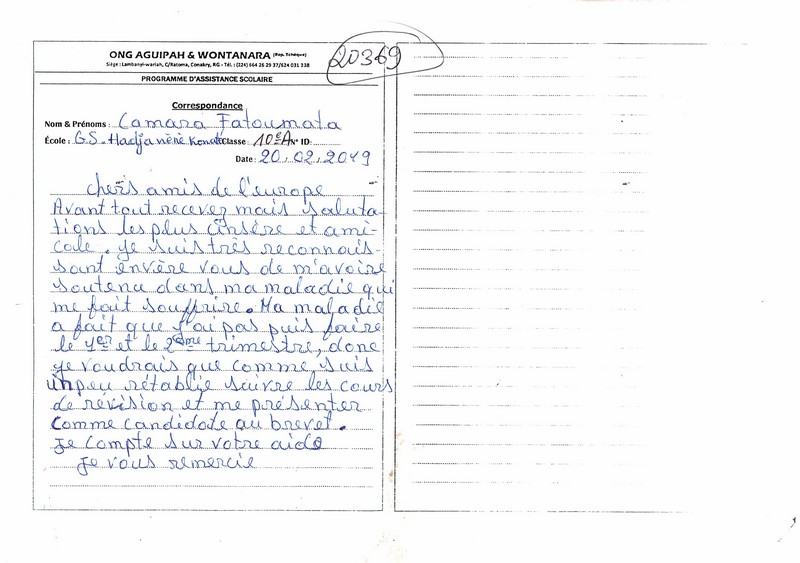 ONG AGUIPAH & WONTANARA (Rep. Tchèque)
Siège : Lambanyi-wariah, C/Ratoma, Conakry, RG - Tél. : (224) 664 26 29 37/624 031 338
20369
PROGRAMME D'ASSISTANCE SCOLAIRE
Correspondance
Nom & Prénoms : Camara Fatoumata
École : G.S. Hadja nènè Konaté Classe : 10e A N° ID:
Date : 20.02.2019
chers amis de l'europe
Avant tout recevez mais saluta-
tions les plus cinsère et ami-
cale. je suis très reconnais-
sant envière vous de m'avoire
soutenu dans ma maladie qui
me fait souffrire. Ma maladie
a fait que j'ai pas puis faire
le 1er et le 2ème trimestre, donc
je voudrais que comme suis
unpeu rétablie suivre les cours
de révision et me présenter
comme candidate au brevet.
je compte sur votre aide
je vous remercie